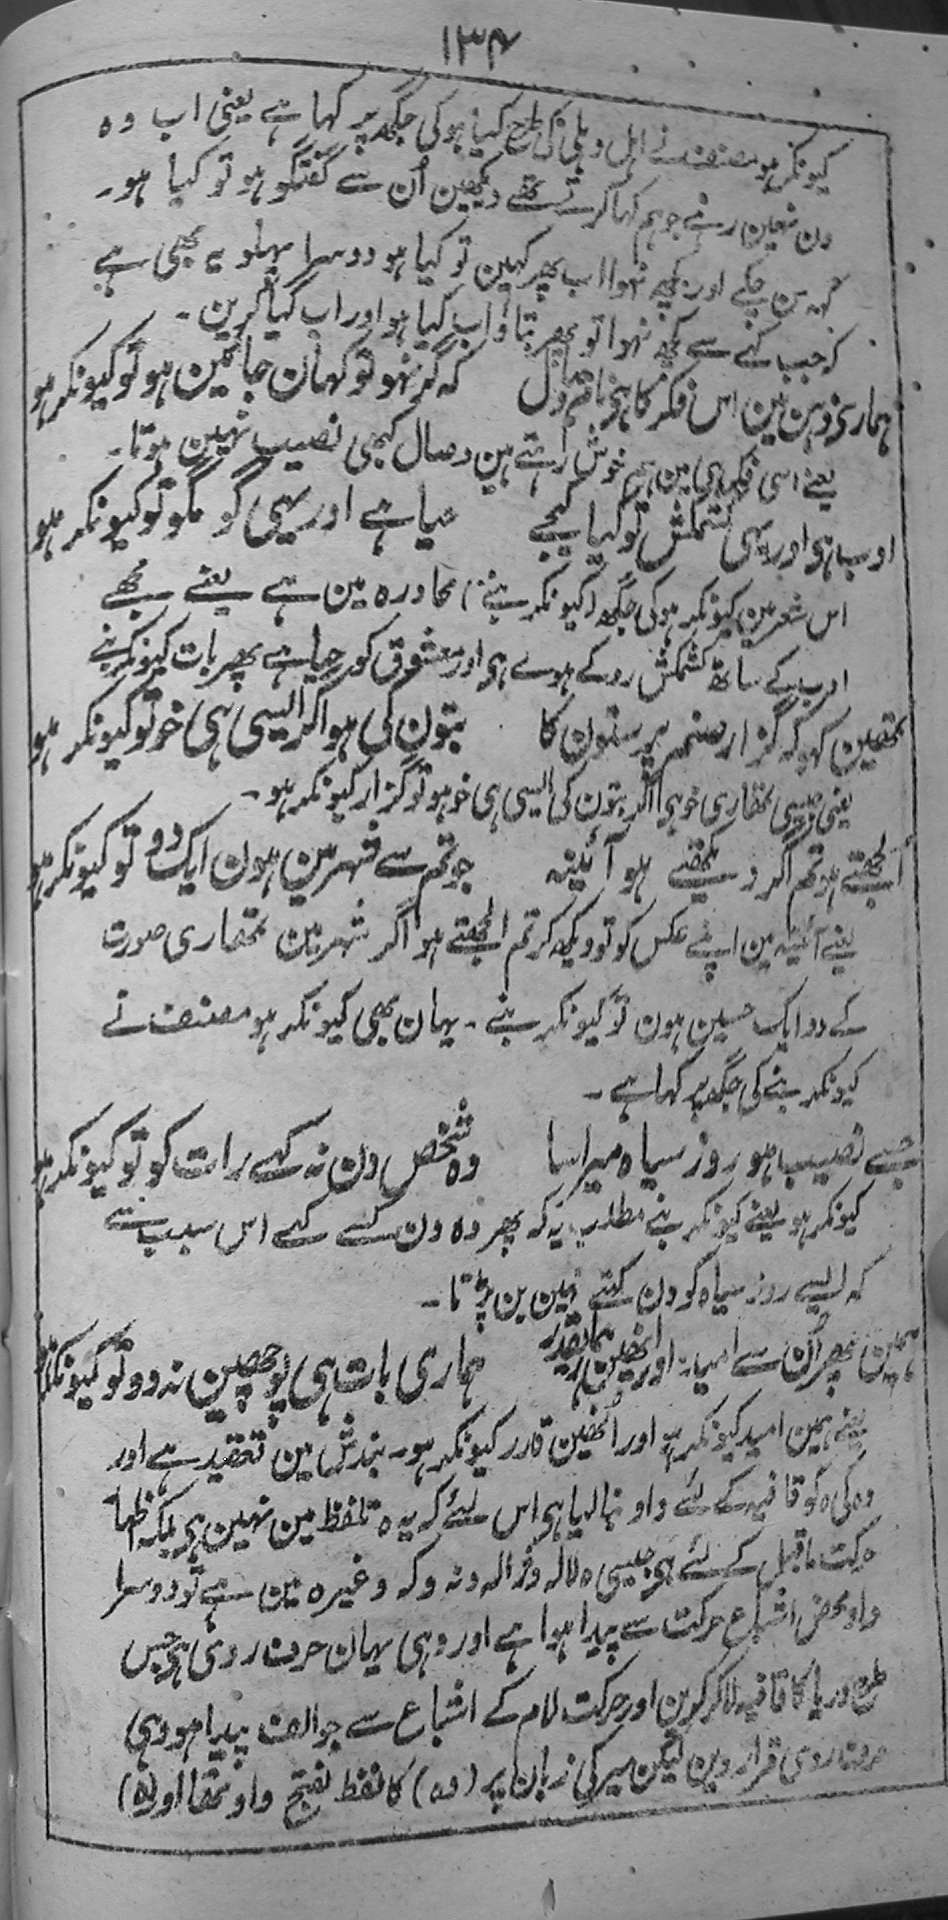 ۱۳۴
کیونکر ہو مصنف نے اہل دہلی کی طرح کیا ہو کی جگہ پر کہا ہے یعنی اب وہ
دن نہین رہے جو ہم کہا کرتے تھے دیکھین اُن سے گفتگو ہو تو کیا ہو۔
کہہ سن چکے اور کچھ نہوا اب پھر کہین تو کیا ہو دوسرا پہلو یہ بھی ہے
کہ جب کہنے سے کچھ نہوا تو پھر بتاؤ اب کیا ہو اور اب کیا کرین۔
ہماری ذہن مین اس فکر کا ہی نام وصال کہ گر نہو تو کہان جائین ہو تو کیونکر ہو
یعنے اسی فکر ہی مین ہم خوش رہتے ہین وصال کبھی نصیب نہین ہوتا۔
ادب ہی اور یہی کشمکش تو کیا کیجے حیا ہے اور یہی گو مگو تو کیونکر ہو
اس شعر مین کیونکر ہو کی جگہ (کیونکر بنے) محاورہ مین ہے یعنے مجھے
ادب کے ساتھ کشمکش روکے ہوے ہی اور معشوق کو حیا ہے پھر بات کیونکر بنے
تمھین کہو کہ گزارا صنم پرستون کا بتون کی ہو اگر ایسی ہی خو تو کیونکر ہو
یعنی جیسی تمھاری خو ہی اگر بتون کی ایسی ہی خو ہو تو گزار کیونکر ہو۔
اُلجھتے ہو تم اگر دیکھتے ہو آئینہ جو تم سے شہر مین ہون ایک دو تو کیونکر ہو
یعنے آئینہ مین اپنے عکس کو تو دیکھ کر تم الجھتے ہو اگر شہر مین تمھاری صورت
کے دو ایک حسین ہون تو کیونکر بنے۔ یہان بھی کیونکر ہو مصنف نے
کیونکر بنے کی جگہ پر کہا ہے۔
جسے نصیب ہو روز سیاہ میرا سا وہ شخص دن نہ کہے رات کو تو کیونکر ہو
کیونکر ہو یعنے کیونکر بنے مطلب یہ کہ پھر وہ دن کسے کہے اس سبب سے
کہ ایسے روز سیاہ کو دن کہتے نہین بن پڑتا۔
ہمین پھر اُن سے امید اور انھین ہماری قدر ہماری بات ہی پوچھین نہ وو تو کیونکر ہو
یعنے ہمین امید کیونکر ہو اور اُنھین قدر کیونکر ہو۔ بندش مین تعقید ہے اور
وہ کی ہ کو قافیہ کے لئے واو بنا لیا ہی اس لئے کہ یہ ہ تلفظ مین نہین ہی بلکہ اظہار
حرکت ماقبل کے لئے ہی جیسی ہ لالہ و ژالہ و نہ و کہ وغیرہ مین ہے تو دوسرا
واو محض اشباع حرکت سے پیدا ہوا ہے اور وہی یہان حرف روی ہی جس
طرح دریا کا قافیہ لا کر کرین اور حرکت لام کے اشباع سے جو الف پیدا ہو وہی
حرف روی قرار دین لیکن میر کی زبان پر (وہ) کا لفظ بفتح واو تھا اور (ہ)